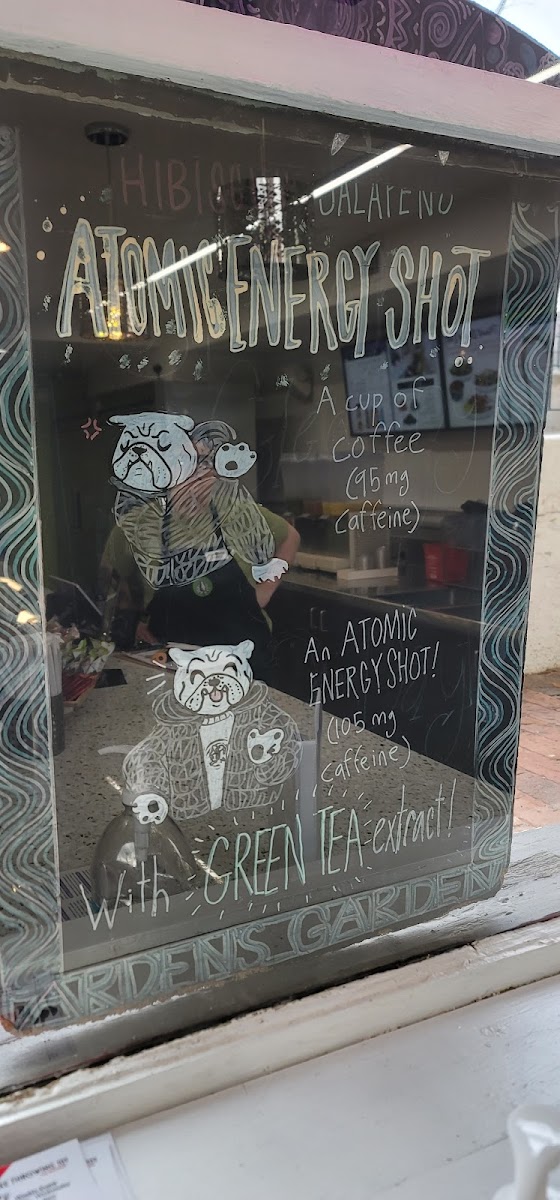 JALAPENO
ATOMIC ENERGY SHOT
A cup of
coffee
(95 mg
caffeine)
An ATOMIC
ENERGY SHOT!
(105 mg
caffeine)
With GREEN TEA extract!
ARDEN'S GARDEN